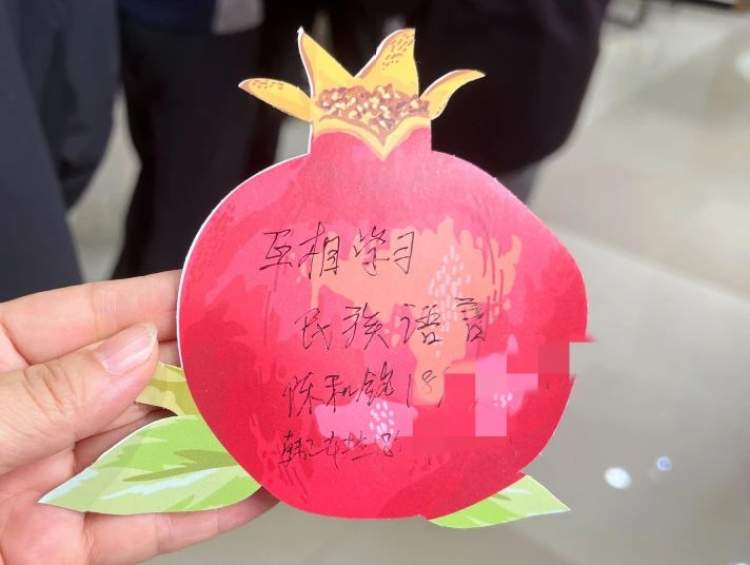 互相学习
民族语言
陈和铭 18